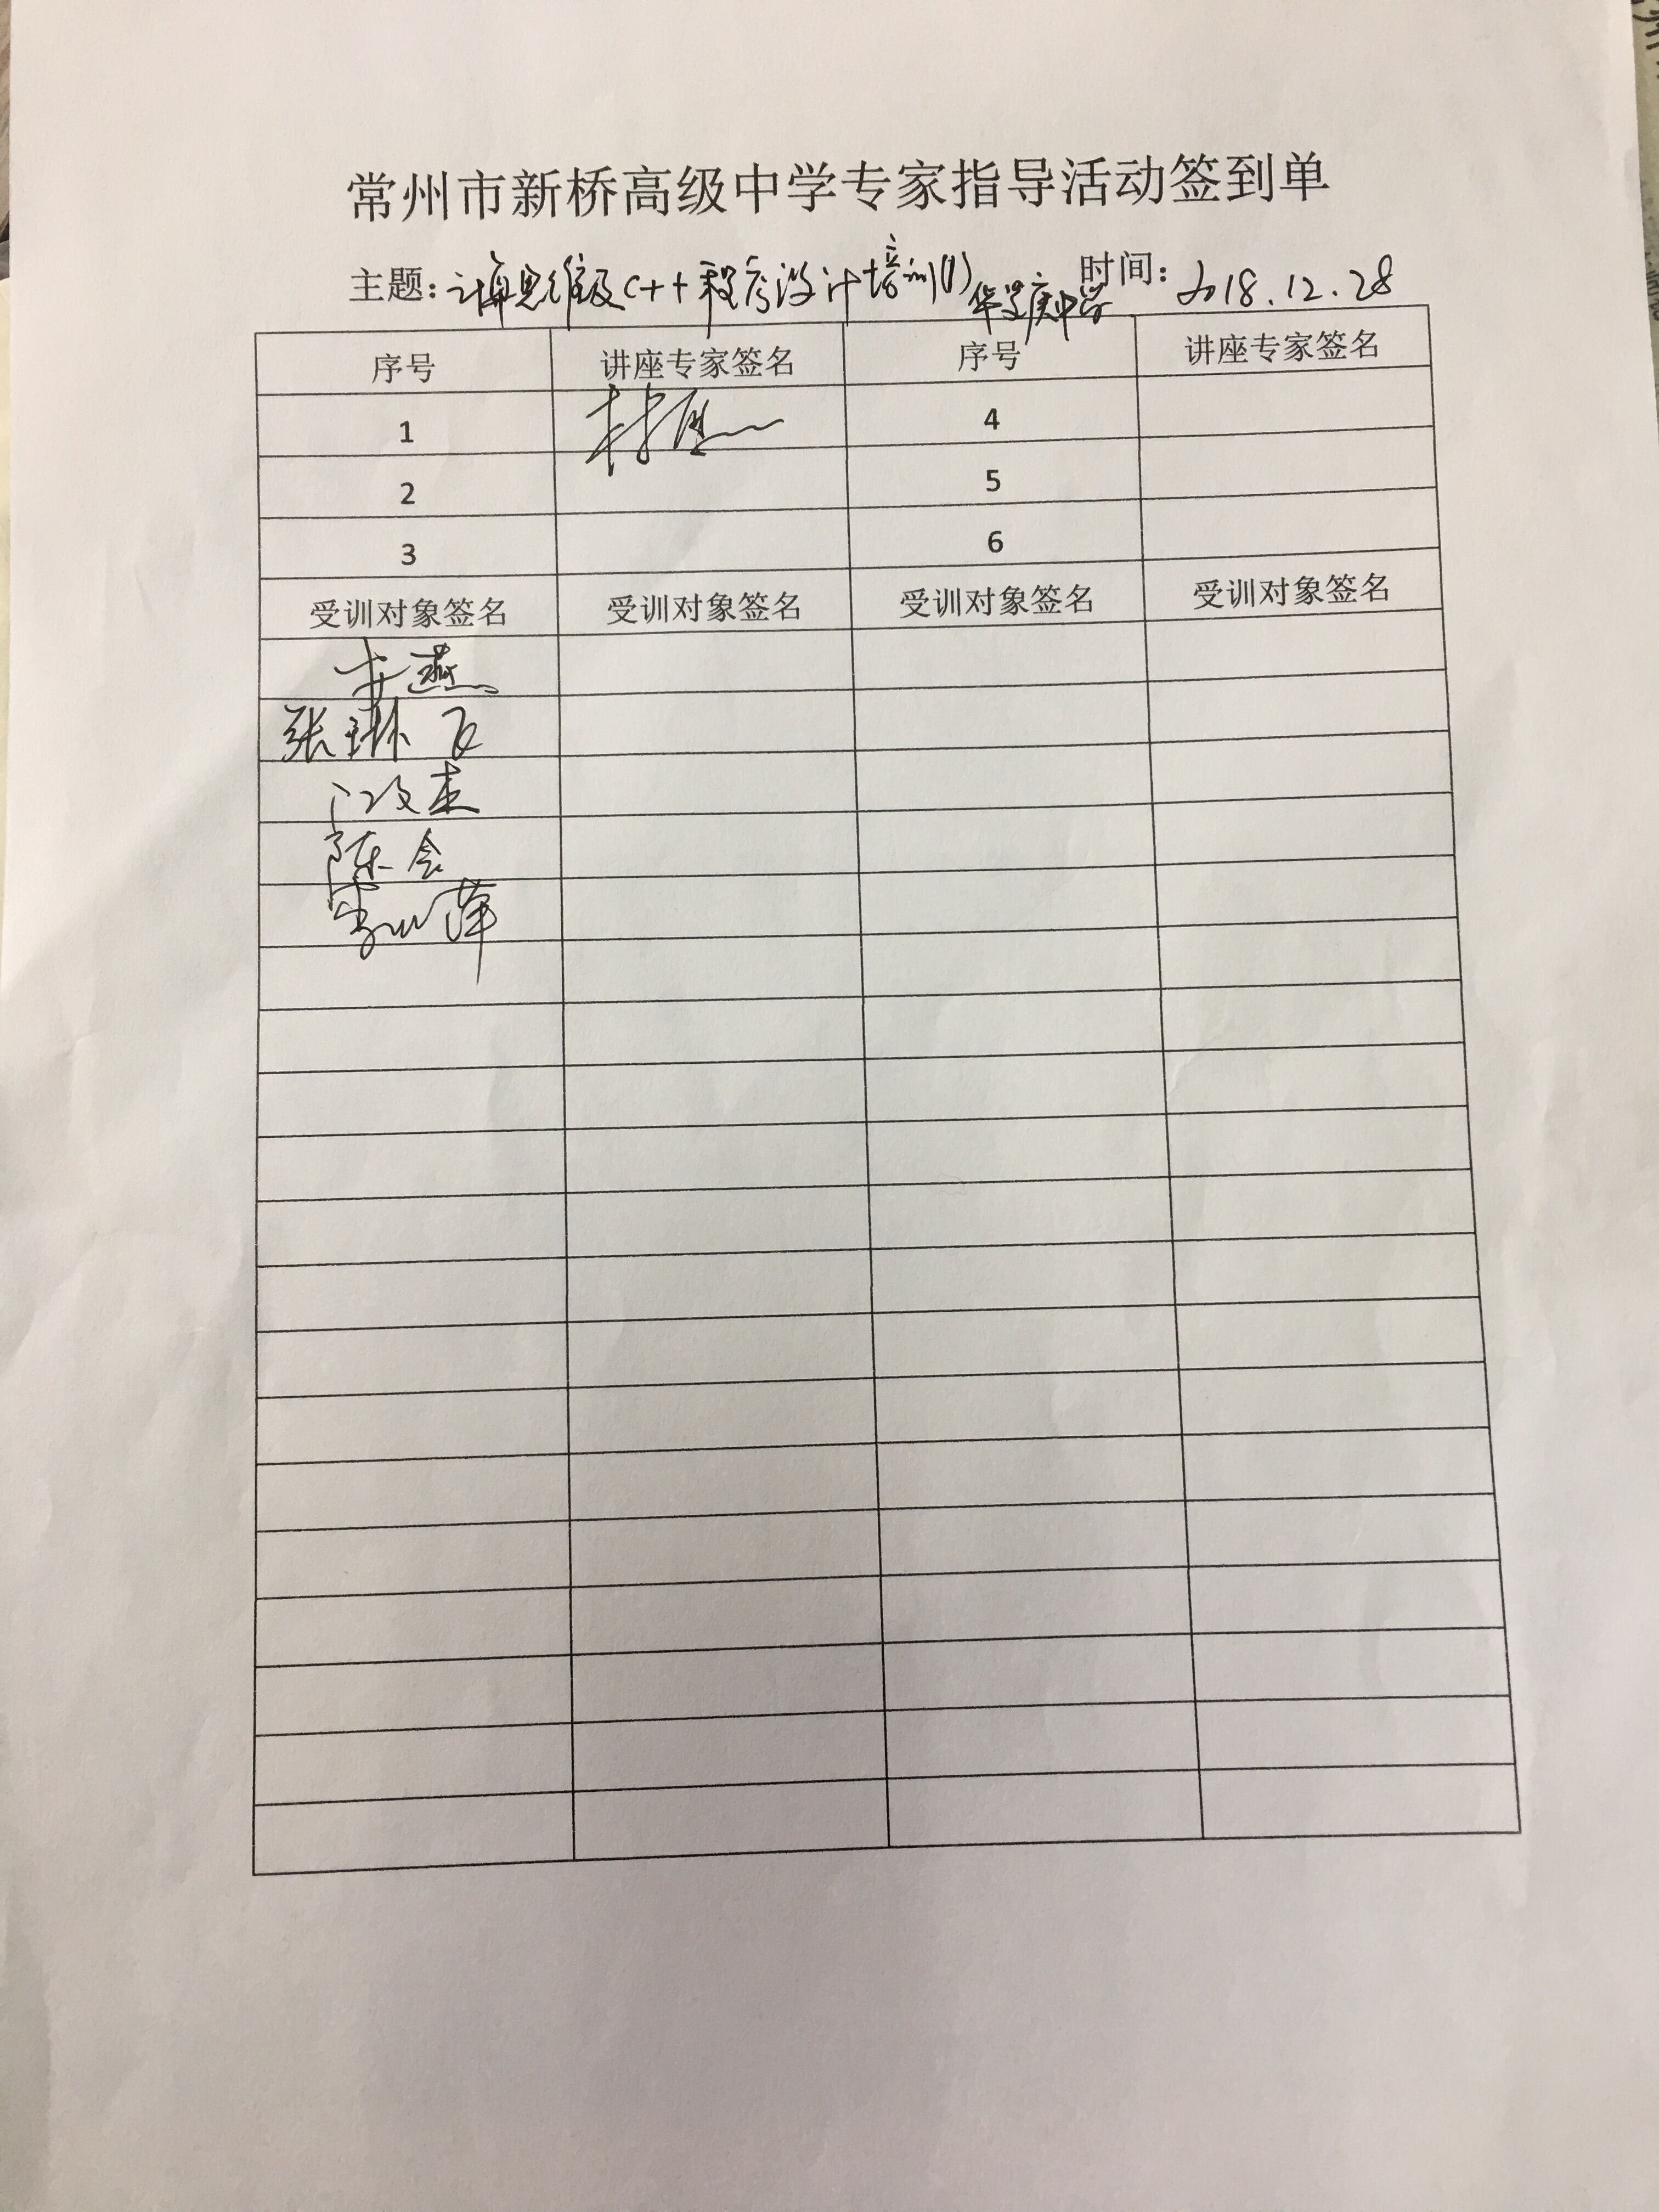 常州市新桥高级中学专家指导活动签到单
主题:计算思维及C++程序设计培训(1) 华罗庚中学 时间:2018.12.28
序号 讲座专家签名 序号 讲座专家签名
1 林厚 4
2 5
3 6
受训对象签名 受训对象签名 受训对象签名 受训对象签名
燕
张琳飞
陈会
萍